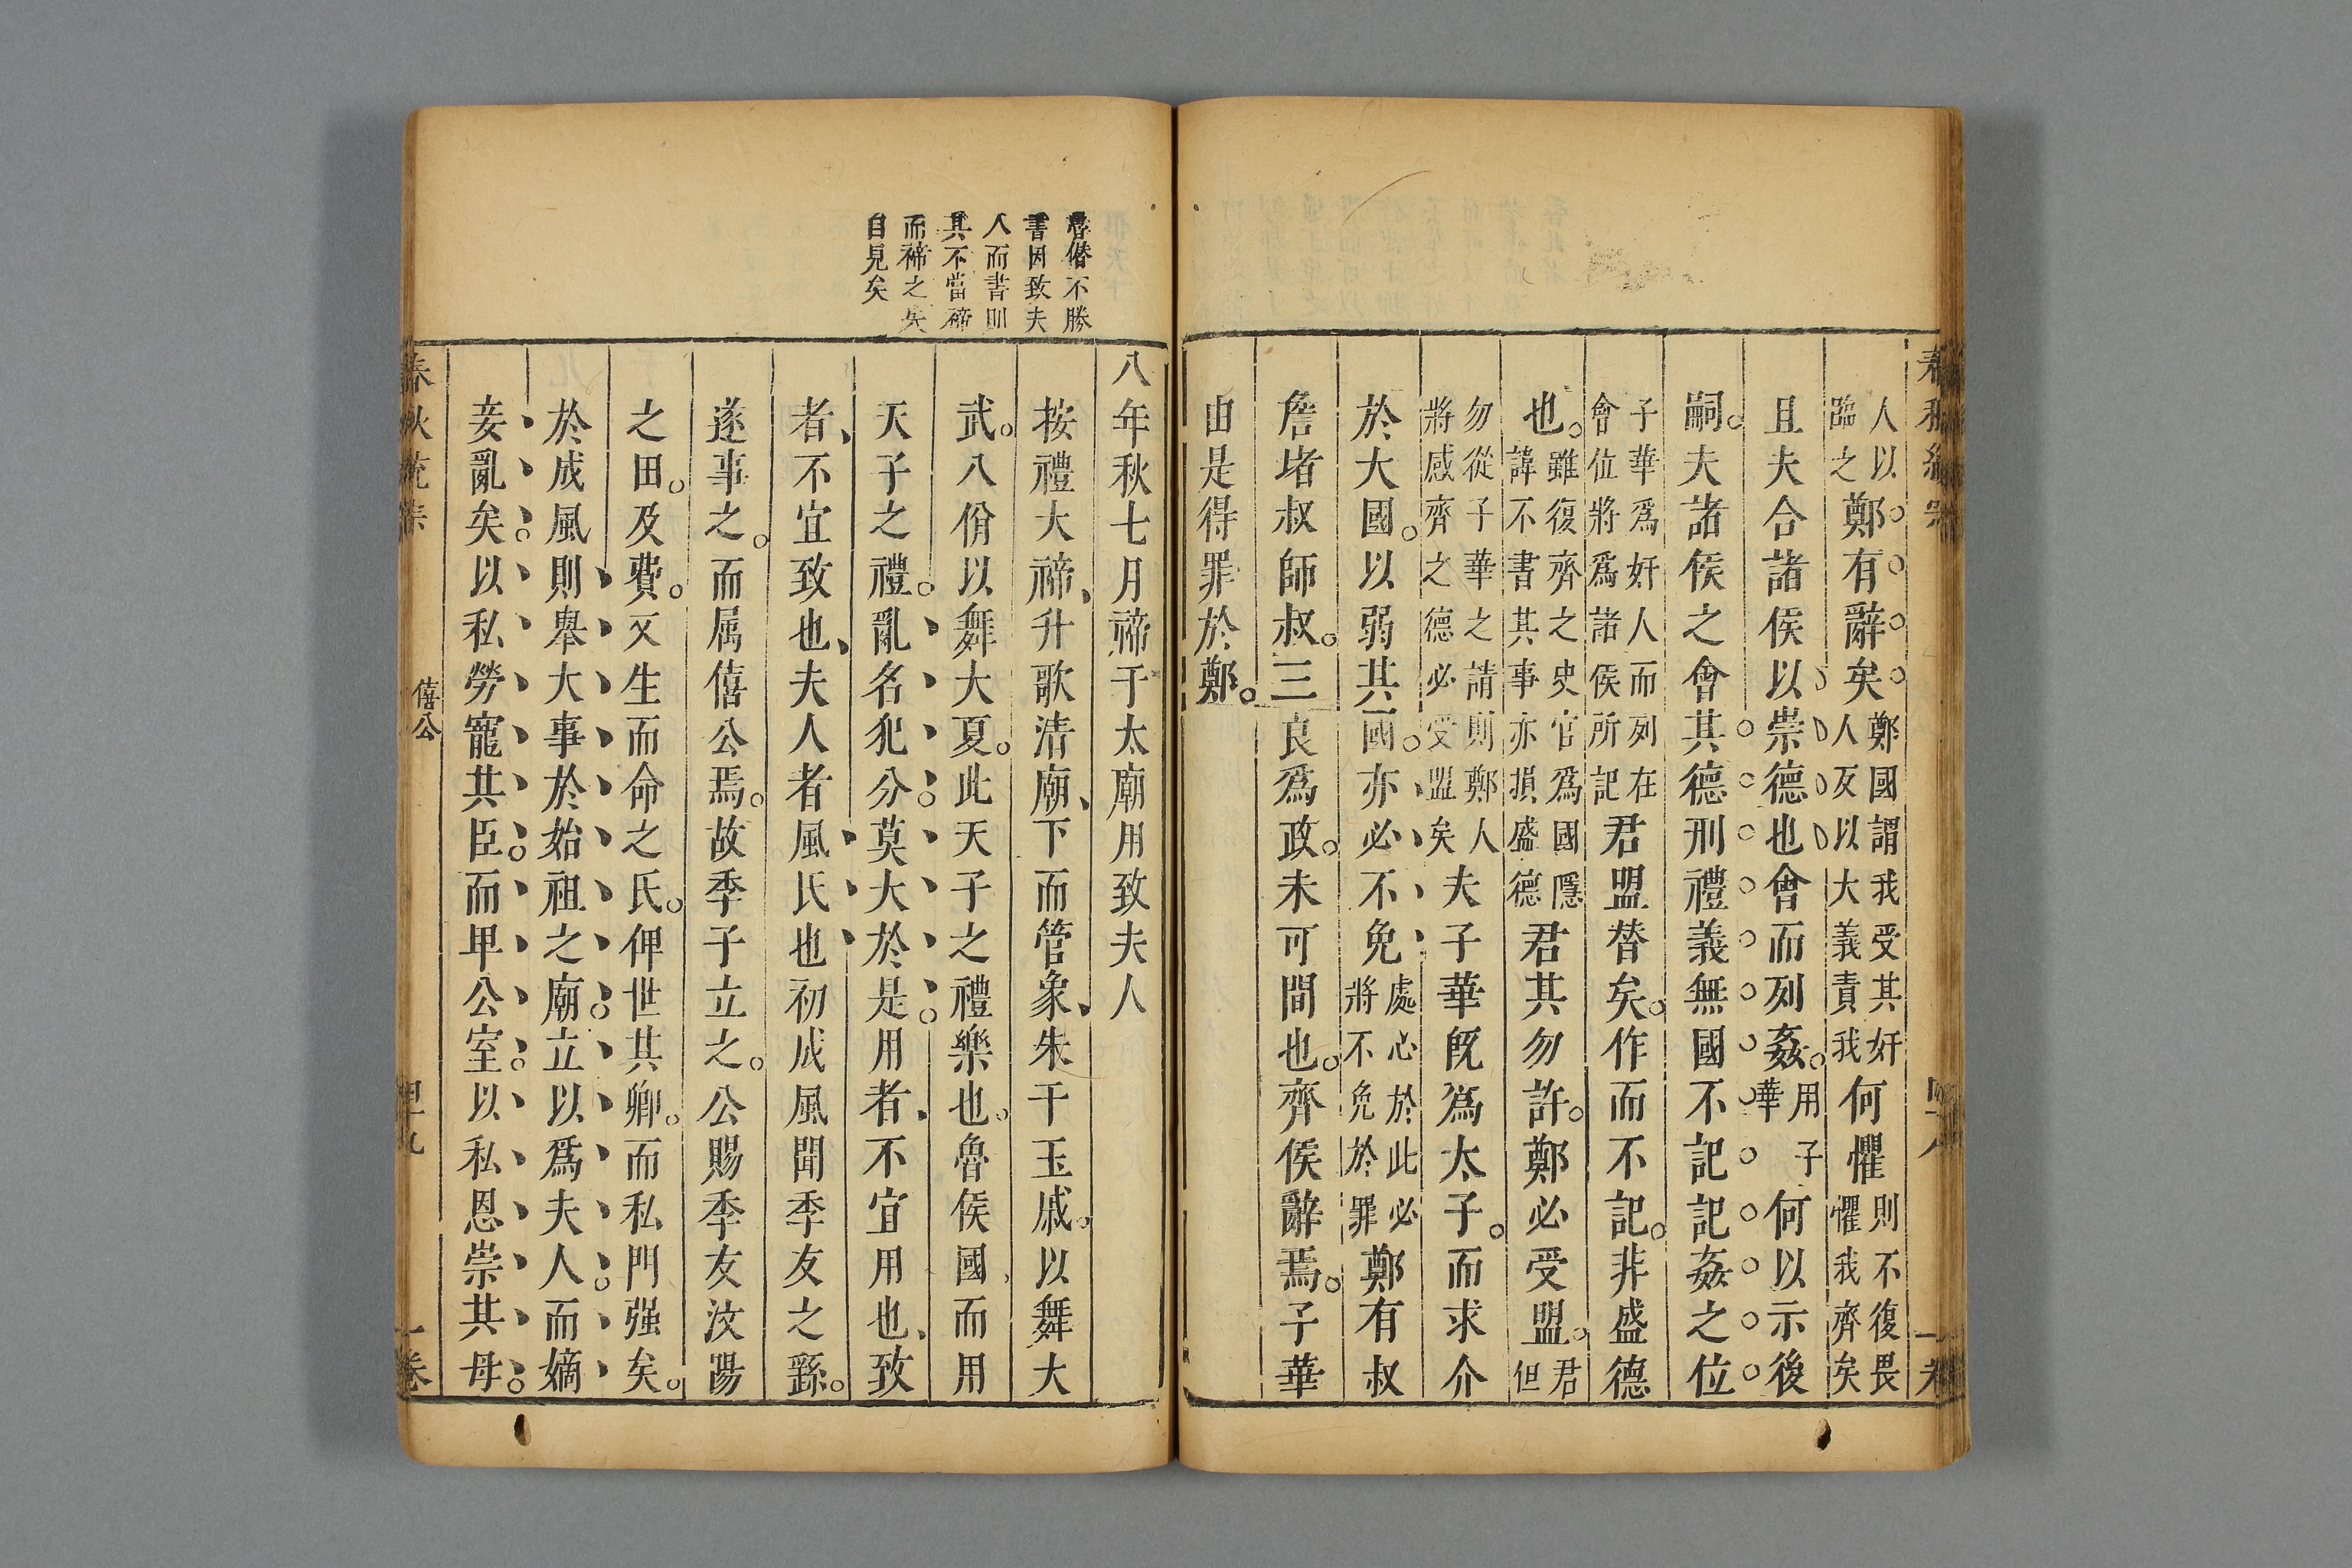 人以臨之鄭有辭矣鄭國謂我受其奸人反以大義責我何懼則不復畏懼我齊矣
且夫合諸侯以崇德也會而列姦用子華何以示後
嗣夫諸侯之會其德刑禮義無國不記記姦之位
子華爲奸人而列在會位將爲諸侯所記君盟替矣作而不記非盛德
也雖復齊之史官爲國隱諱不書其事亦損盛德君其勿許鄭必受盟君但
勿從子華之請則鄭人將感齊之德必受盟矣夫子華既爲太子而求介
於大國以弱其國亦必不免處心於此必將不免於罪鄭有叔
詹堵叔師叔三良爲政未可間也齊侯辭焉子華
由是得罪於鄭
魯僭不勝
書因致夫
人而書則
其不當禘
而禘之矣
自見矣
八年秋七月禘于太廟用致夫人
按禮大禘升歌清廟下而管象朱干玉戚以舞大
武八佾以舞大夏此天子之禮樂也魯侯國而用
天子之禮亂名犯分莫大於是用者不宜用也致
者不宜致也夫人者風氏也初成風聞季友之繇
遂事之而属僖公焉故季子立之公賜季友汶陽
之田及費又生而命之氏俾世其卿而私門强矣
於成風則舉大事於始祖之廟立以爲夫人而嫡
妾亂矣以私勞寵其臣而卑公室以私恩崇其母
僖公